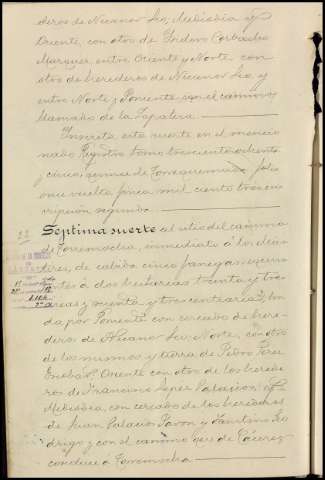 deros de Nicanor Leo, Mediodia y
Oriente, con otro de Isidoro Corbacho
Marquez entre Oriente y Norte con
otro de herederos de Nicanor Leo, y
entre Norte y Poniente con el camino
llamado de la Zapatera.
Inscrita esta suerte en el mencio
nado Registro tomo trescientos ochenta
y cinco, quince de Torrequemada, folio
once vuelto finca mil ciento tres ins
cripción segunda.
22
Septima suerte al sitio del camino
de Torremocha, inmediato á los
de cabida cinco fanegas
á dos hectareas treinta y tres
areas y ochenta y tres centiareas, lin
da por Poniente con cercado de here
deros de Nicanor Leo, Norte, con otro
de los mismos y tierra de Pedro Perez
Oriente con otro de los herede
ros de Francisco Lopez Palacios y
Mediodia, con cercado de los herederos
de Juan Palacio Pavon y Faustino Ro
drigo y con el camino que de Cáceres
conduce á Torremocha